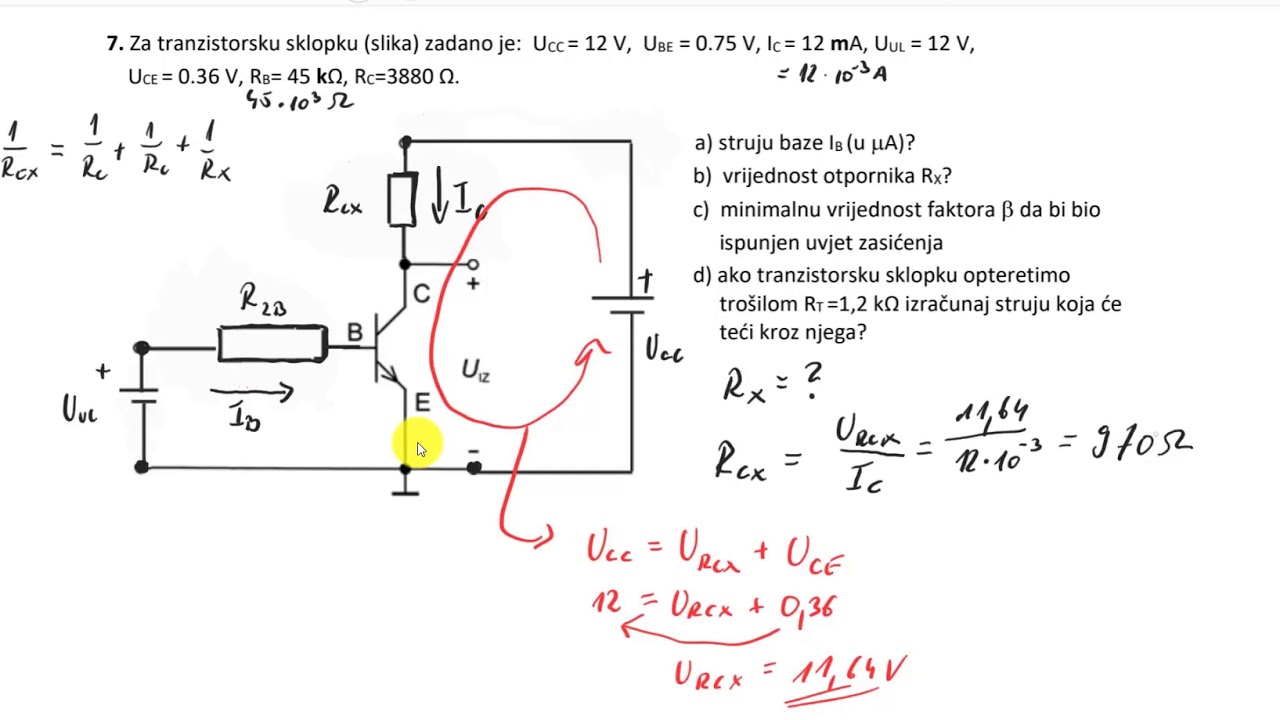 7. Za tranzistorsku sklopku (slika) zadano je: UCC = 12 V, UBE = 0.75 V, IC = 12 mA, UUL = 12 V,
UCE = 0.36 V, RB= 45 kΩ, RC=3880 Ω.
= 12 · 10⁻³ A
45·10³ Ω
1/RCX = 1/RC + 1/RC + 1/RX
RCX
IC
+
C
R2B
B
+
UUL
IB
E
UIZ
-
+
UCC
a) struju baze IB (u μA)?
b) vrijednost otpornika RX?
c) minimalnu vrijednost faktora β da bi bio
ispunjen uvjet zasićenja
d) ako tranzistorsku sklopku opteretimo
trošilom RT =1,2 kΩ izračunaj struju koja će
teći kroz njega?
RX = ?
RCX = URCX/IC = 11,64/12·10⁻³ = 970 Ω
UCC = URCX + UCE
12 = URCX + 0,36
URCX = 11,64 V